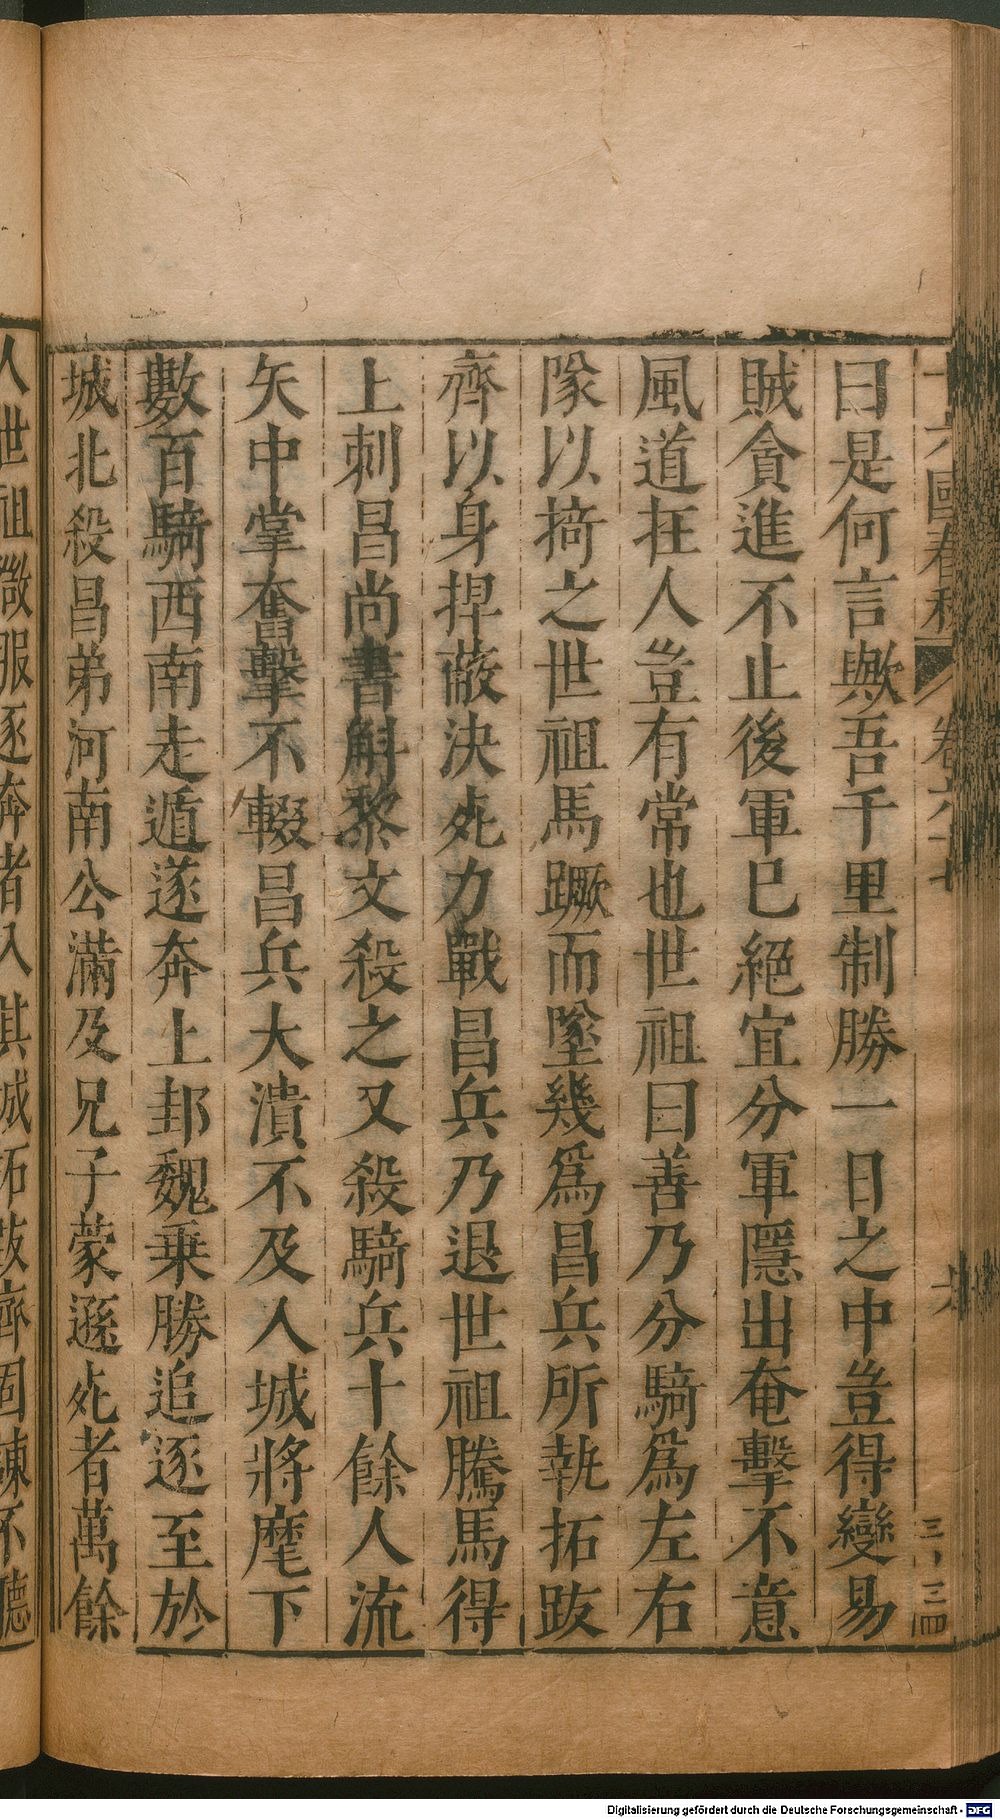 曰是何言歟吾千里制勝一日之中豈得變易
賊貪進不止後軍已絕宜分軍隱出奄擊不意
風道在人豈有常也世祖曰善乃分騎爲左右
隊以掎之世祖馬蹶而墜幾爲昌兵所執拓跋
齊以身捍蔽決死力戰昌兵乃退世祖騰馬得
上刺昌尚書斛黎文殺之又殺騎兵十餘人流
矢中掌奮擊不輟昌兵大潰不及入城將麾下
數百騎西南走遁遂奔上邽魏乗勝追逐至於
城北殺昌弟河南公滿及兄子蒙遜死者萬餘
人世祖微服逐奔者入其城拓跋齊固諫不聽
Digitalisierung gefördert durch die Deutsche Forschungsgemeinschaft - DFG